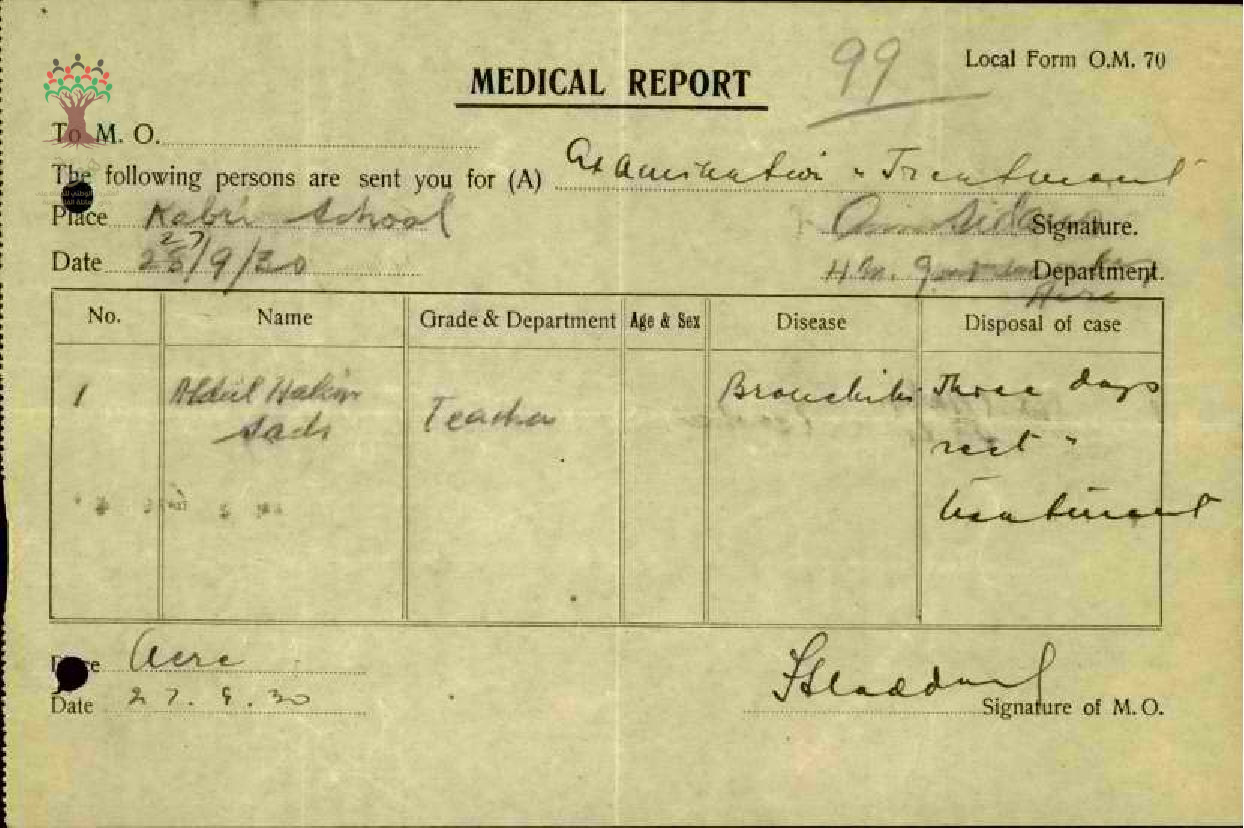 99
Local Form O.M. 70
MEDICAL REPORT
To M. O.
The following persons are sent you for (A) Examination & Treatment
Place Kabri School Signature.
Date 27/9/30 Department.
Acre
No. Name Grade & Department Age & Sex Disease Disposal of case
1 Abdul Halim Teacher Bronchitis Three days
rest &
treatment
Place Acre
Date 27.9.30
Signature of M. O.